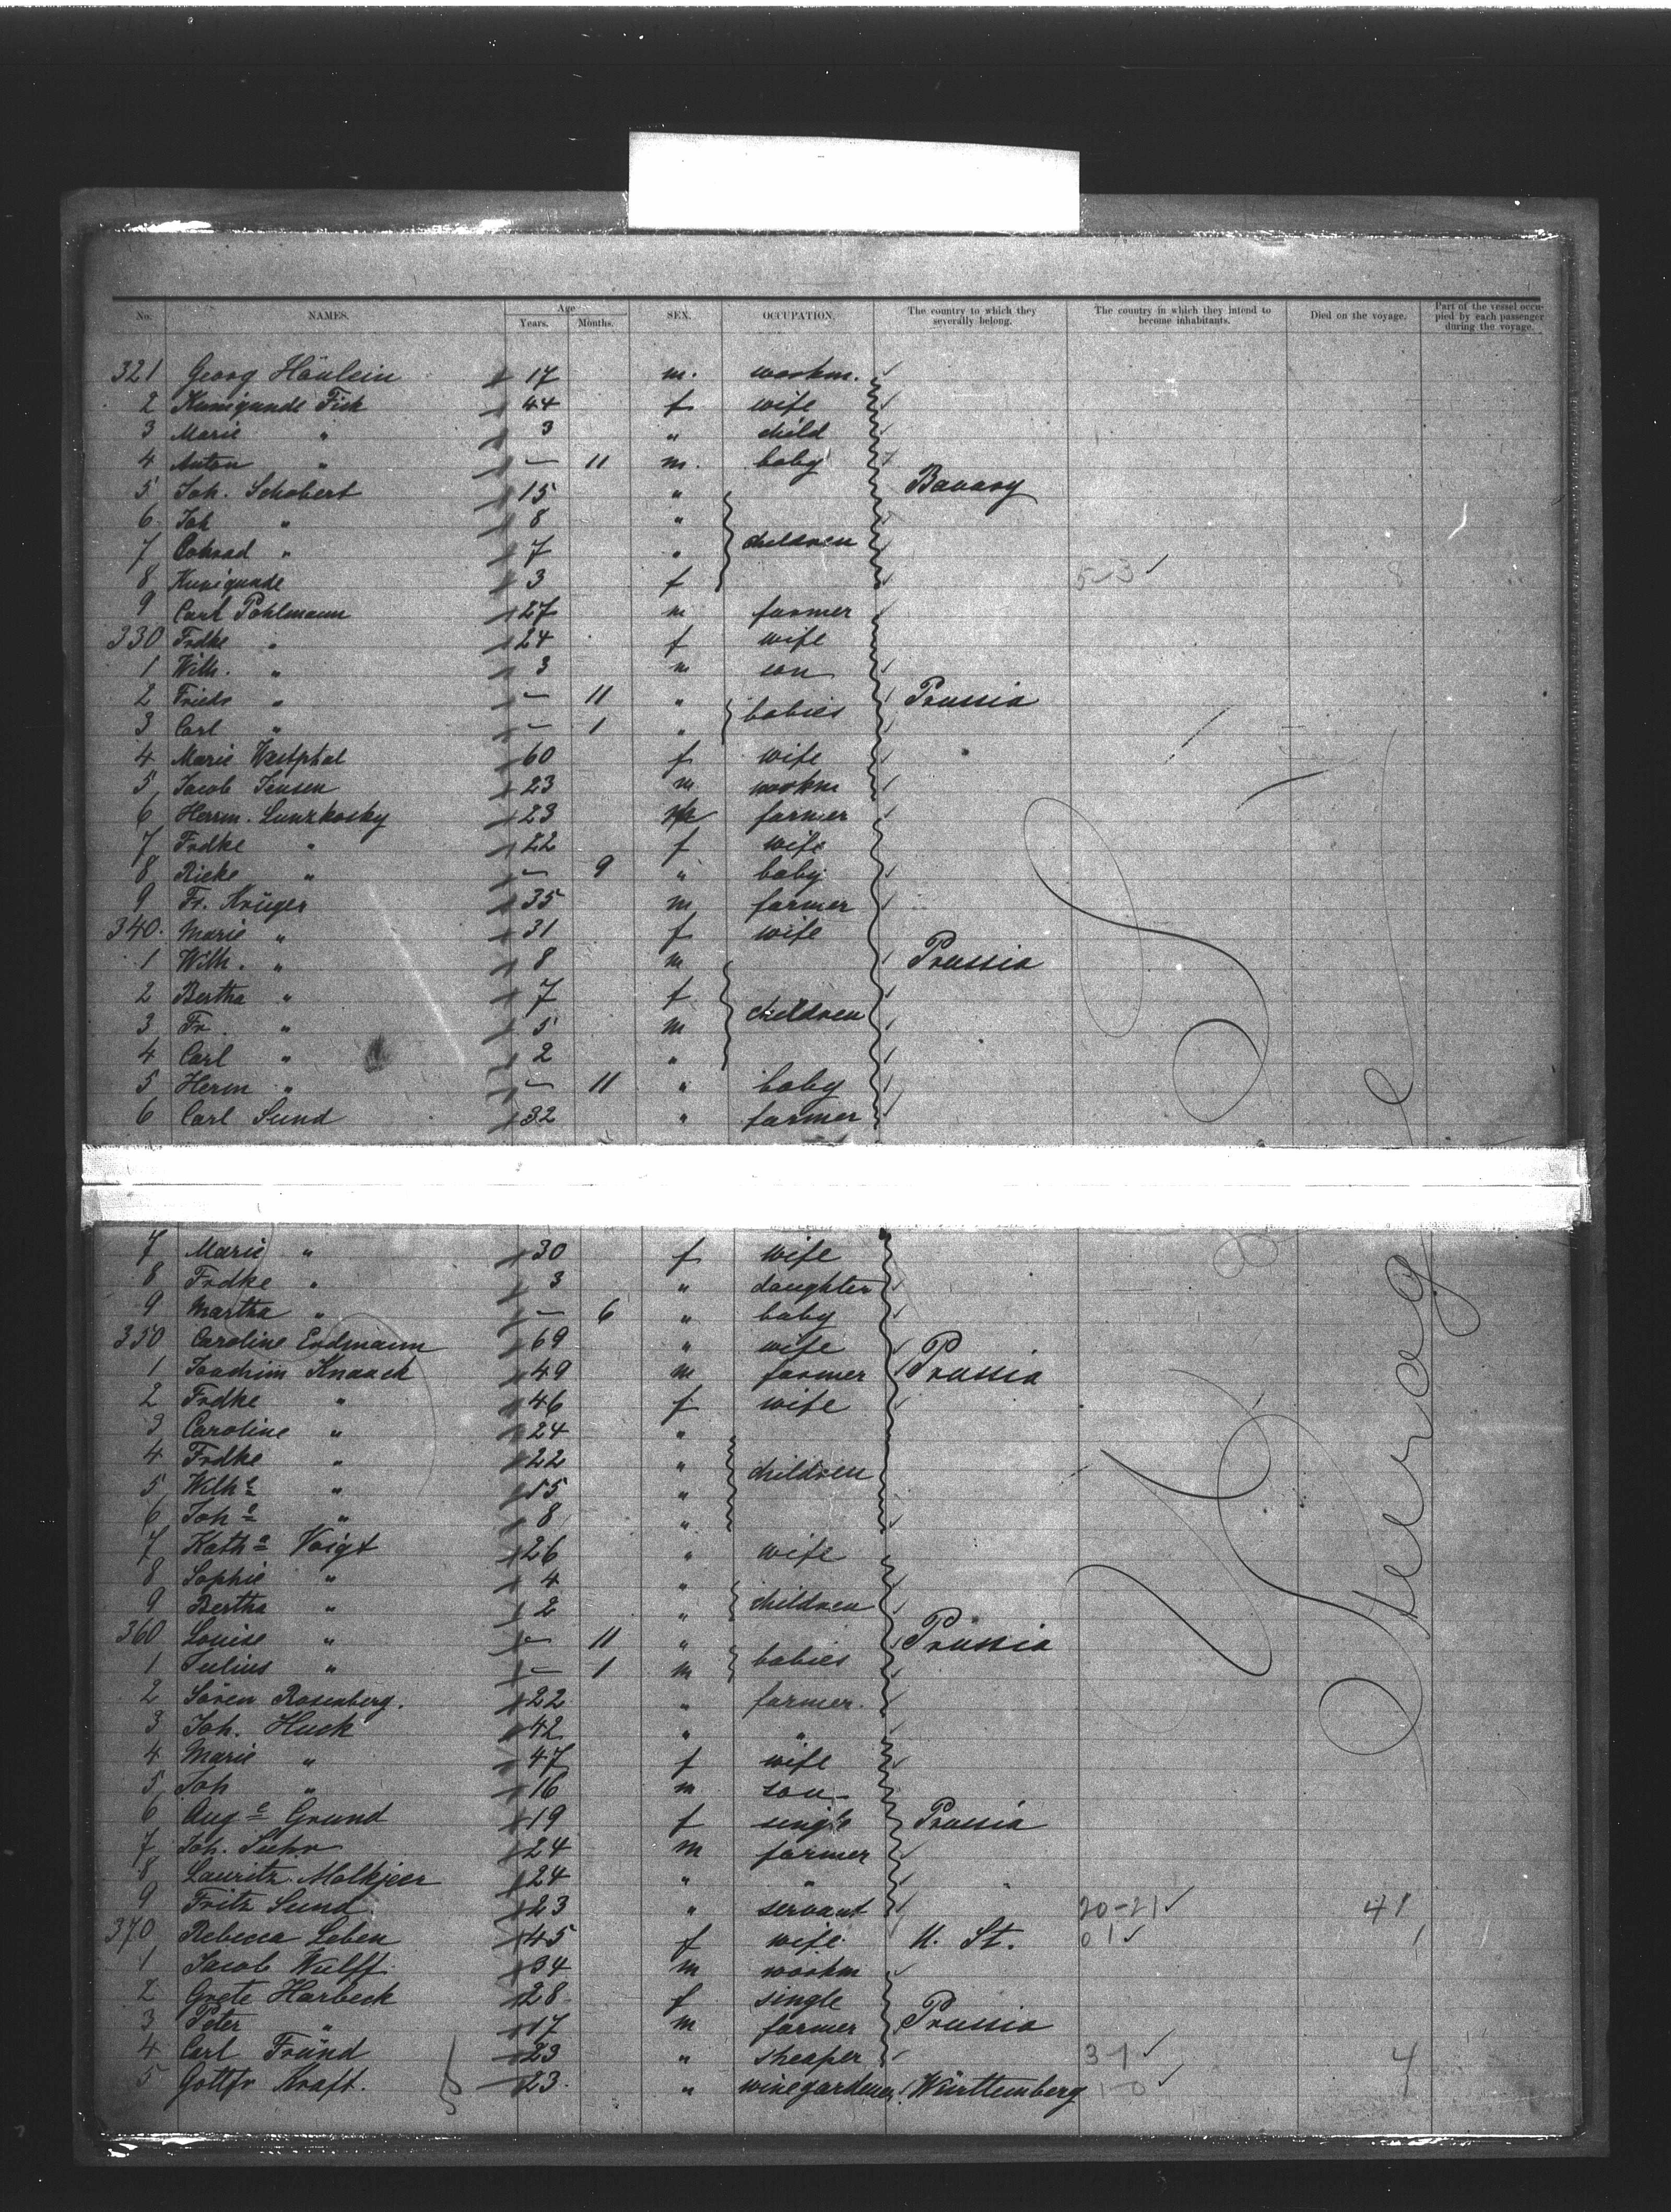 No. NAMES. Age Years. Months. SEX. OCCUPATION. The country to which they severally belong. The country in which they intend to become inhabitants. Died on the voyage. Part of the vessel occupied by each passenger during the voyage.
321 Georg Häulein 17 m. workm.
2 Kunigunde Fick 44 f wife
3 Marie " 3 " child
4 Anton " — 11 m. baby
5 Joh. Schobert 15 " Bavary
6 Joh " 8 "
7 Conrad " 7 " children
8 Kunigunde 3 f 5-3
9 Carl Pohlmann 27 m farmer
330 Frdke " 24 f wife
1 Wilh. " 3 m son
2 Friedr " — 11 " babies Prussia
3 Carl " — 1 "
4 Marie Westphal 60 f wife
5 Jacob Jensen 23 m workm
6 Herm. Lunzkosky 23 m farmer
7 Frdke " 22 f wife
8 Rieke " — 9 " baby
9 Fr. Krüger 35 m farmer
340. Marie " 31 f wife
1 Wilh. " 8 m Prussia
2 Bertha " 7 f children
3 Fr. " 5 m
4 Carl " 2 "
5 Herm " — 11 " baby
6 Carl Sund 32 " farmer
7 Marie " 30 f wife
8 Frdke " 3 " daughter
9 Martha " — 6 " baby
350 Caroline Erdmann 69 " wife Prussia
1 Joachim Knaack 49 m farmer
2 Frdke " 46 f wife
3 Caroline " 24 "
4 Frdke " 22 " children
5 Wilhe " 15 "
6 Johe " 8 "
7 Kathe Voigt 26 " wife
8 Sophie " 4 "
9 Bertha " 2 " children
360 Louise " — 11 " babies Prussia
1 Julius " — 1 m
2 Sören Rosenberg. 22 " farmer.
3 Joh. Huck 42 " "
4 Marie " 47 f wife
5 Joh " 16 m son
6 Auge Grund 19 f single Prussia
7 Joh. Suhr 24 m farmer
8 Lauritz Molkjeer 24 " "
9 Fritz Sund 23 " servant 20-21 41
370 Rebecca Leben 45 f wife U. St. 0 1 1
1 Jacob Wulff 34 m workm
2 Grete Harbeck 28 f single
3 Peter " 17 m farmer Prussia
4 Carl Fründ 23 " sheaper 3-1 4
5 Gottfr Kraft. 23. " winegardener Württemberg 1-0
Steerage